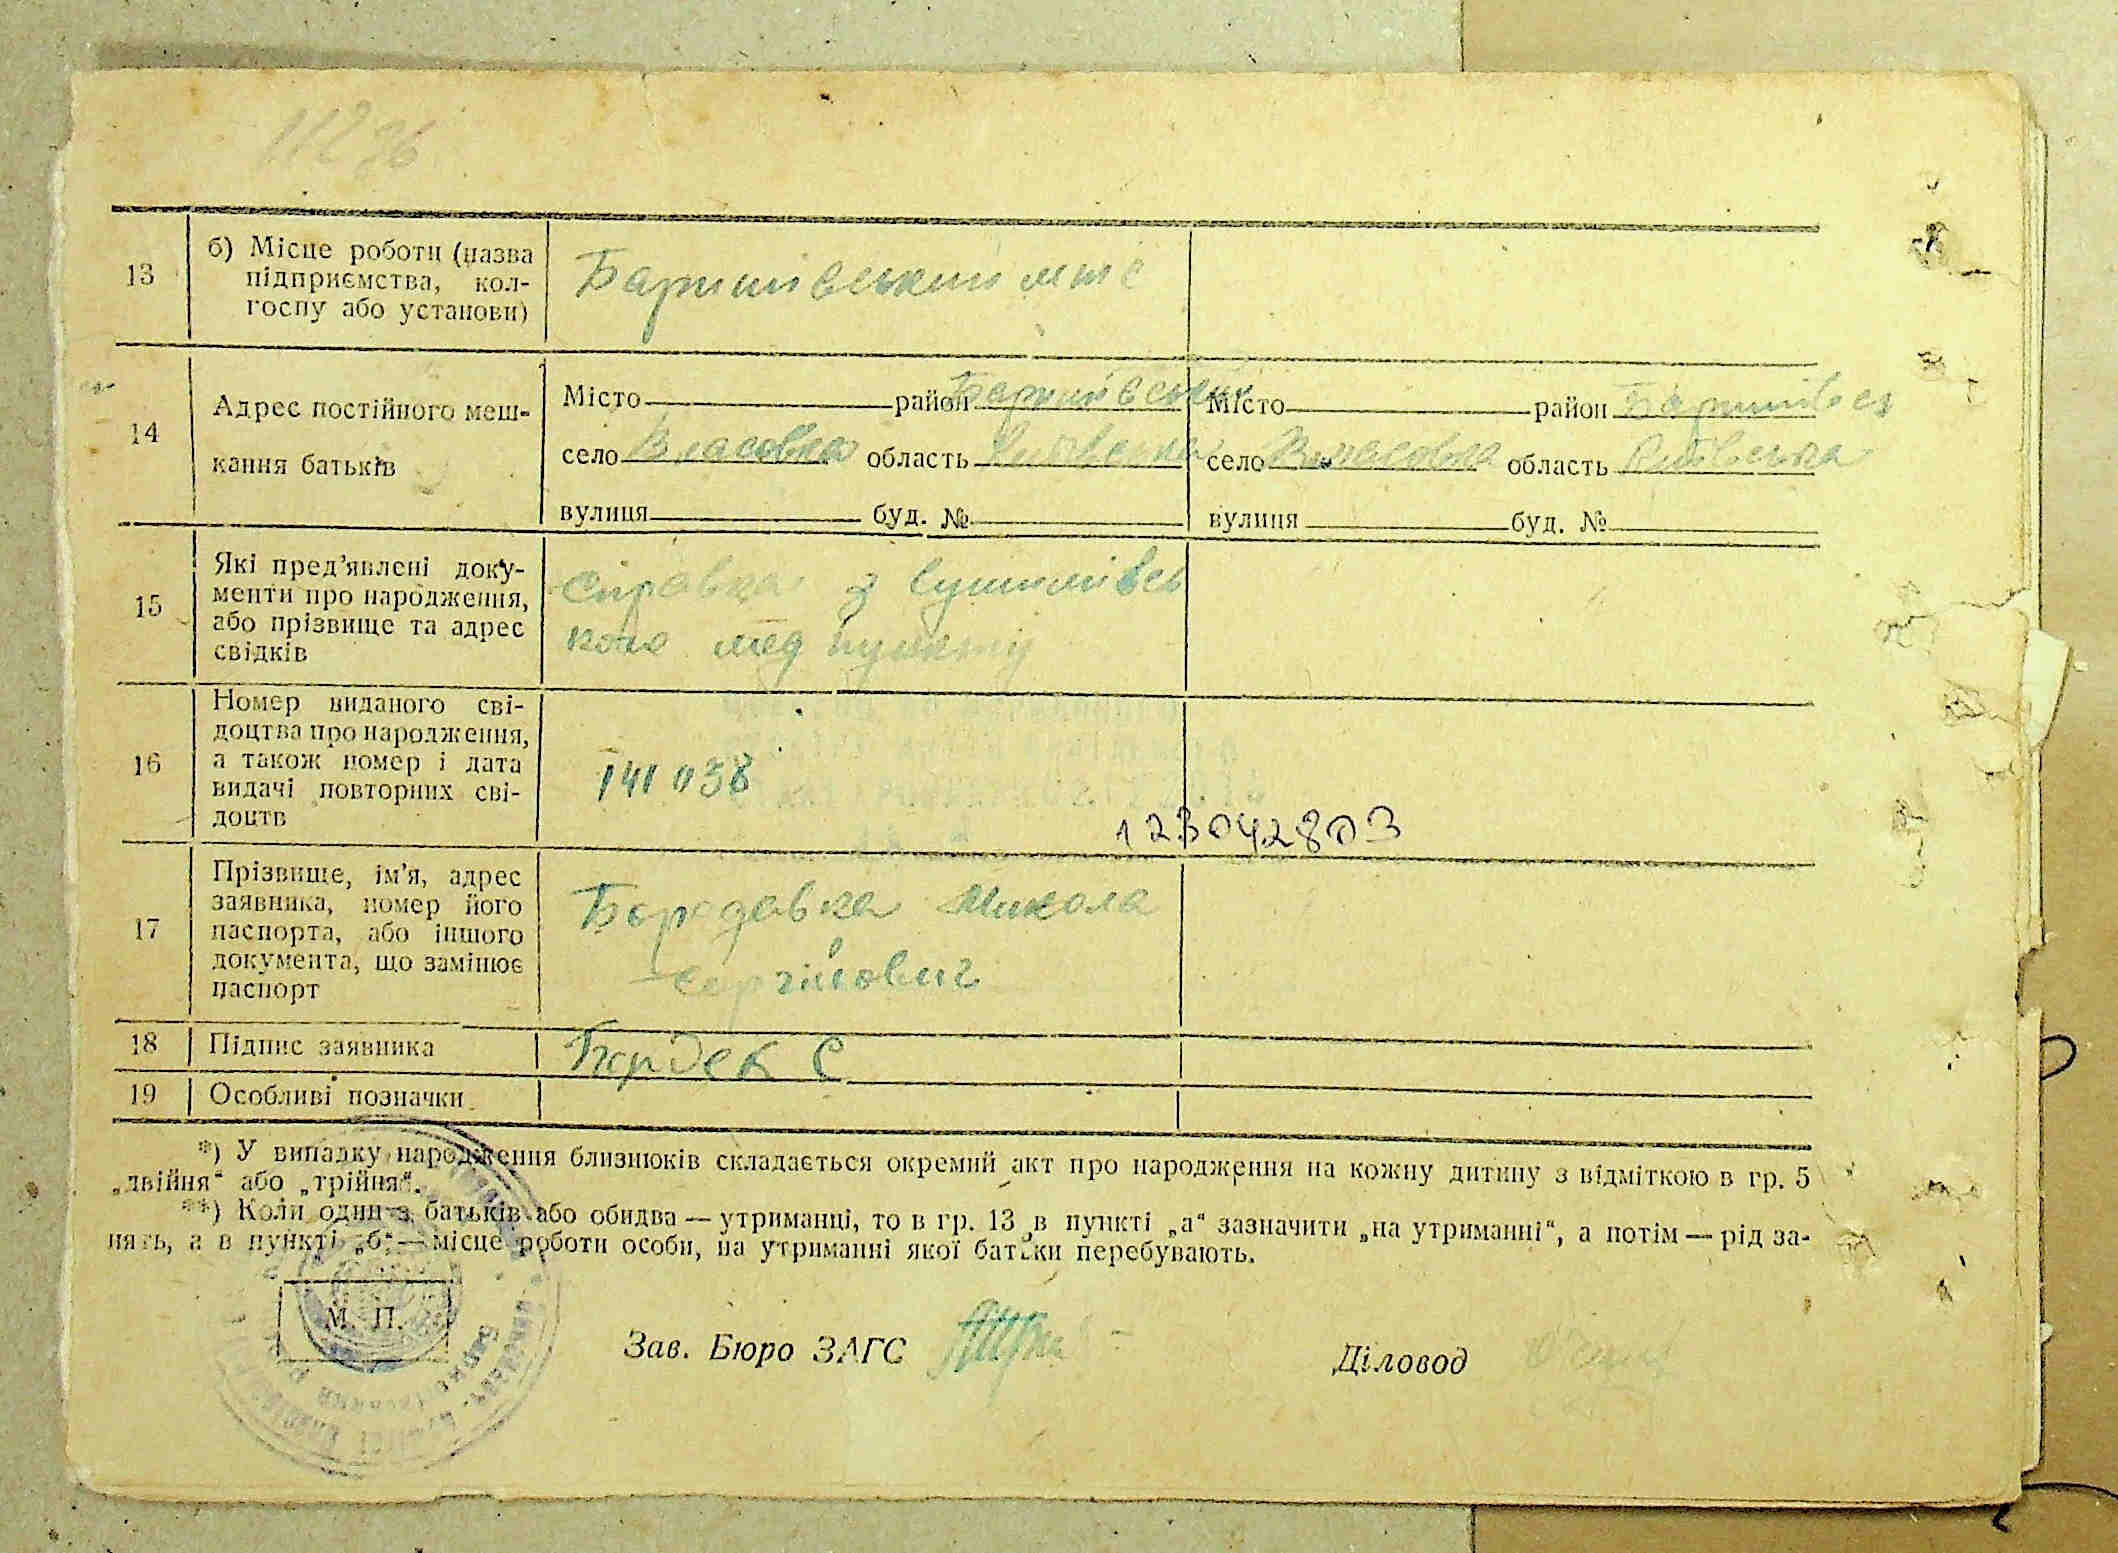 13
б) Місце роботи (назва
підприємства, кол-
госпу або установи)
Баришівський мтс
14
Адрес постійного меш-
кання батьків
Місто район Баришівський
село Власовка область Київська
вулиця буд. №
Місто район Баришівськ
село Власовка область Київська
вулиця буд. №
15
Які пред’явлені доку-
менти про народження,
або прізвище та адрес
свідків
справка з
мед пункту
16
Номер виданого сві-
доцтва про народження,
а також номер і дата
видачі повторних сві-
доцтв
141038
123042803
17
Прізвище, ім’я, адрес
заявника, номер його
паспорта, або іншого
документа, що замінює
паспорт
Бородавка Микола
Сергійович
18
Підпис заявника
19
Особливі позначки
*) У випадку народження близнюків складається окремий акт про народження на кожну дитину з відміткою в гр. 5
„двійня“ або „трійня“.
**) Коли один з батьків або обидва — утриманці, то в гр. 13 в пункті „а“ зазначити „на утриманні“, а потім — рід за-
нять, а в пункті „б“ — місце роботи особи, на утриманні якої батьки перебувають.
М. П.
Зав. Бюро ЗАГС
Діловод